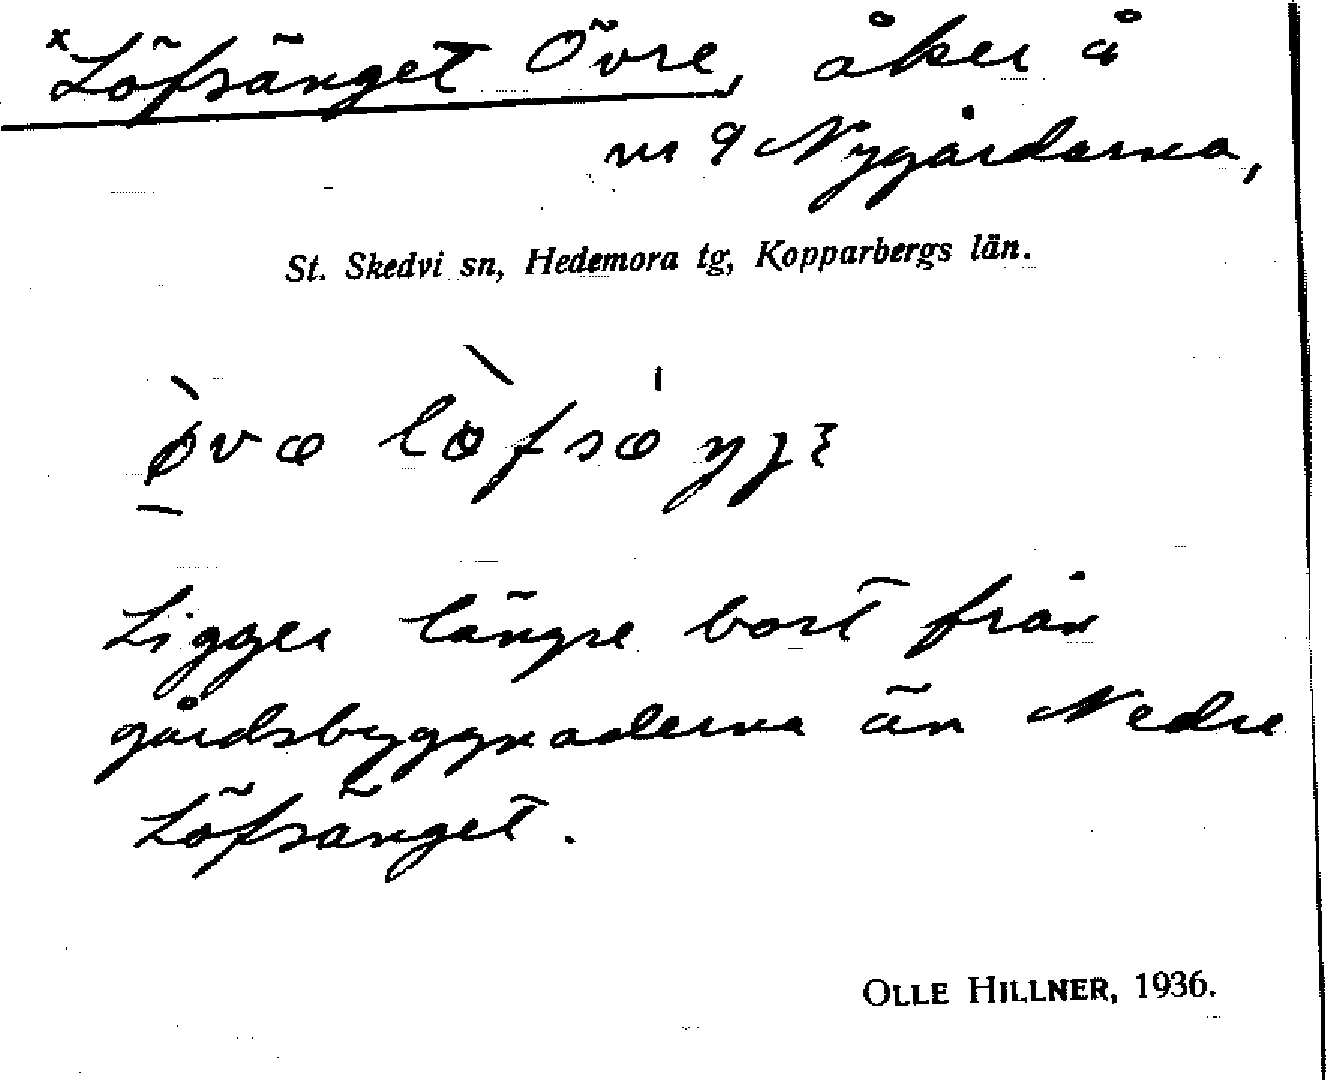 x Löfsänget Övre, åker å
nr 9 Nygårdarna,
St. Skedvi sn, Hedemora tg, Kopparbergs län.
Ligger längre bort från
gårdsbyggnaderna än Nedre
Löfsänget.
OLLE HILLNER, 1936.